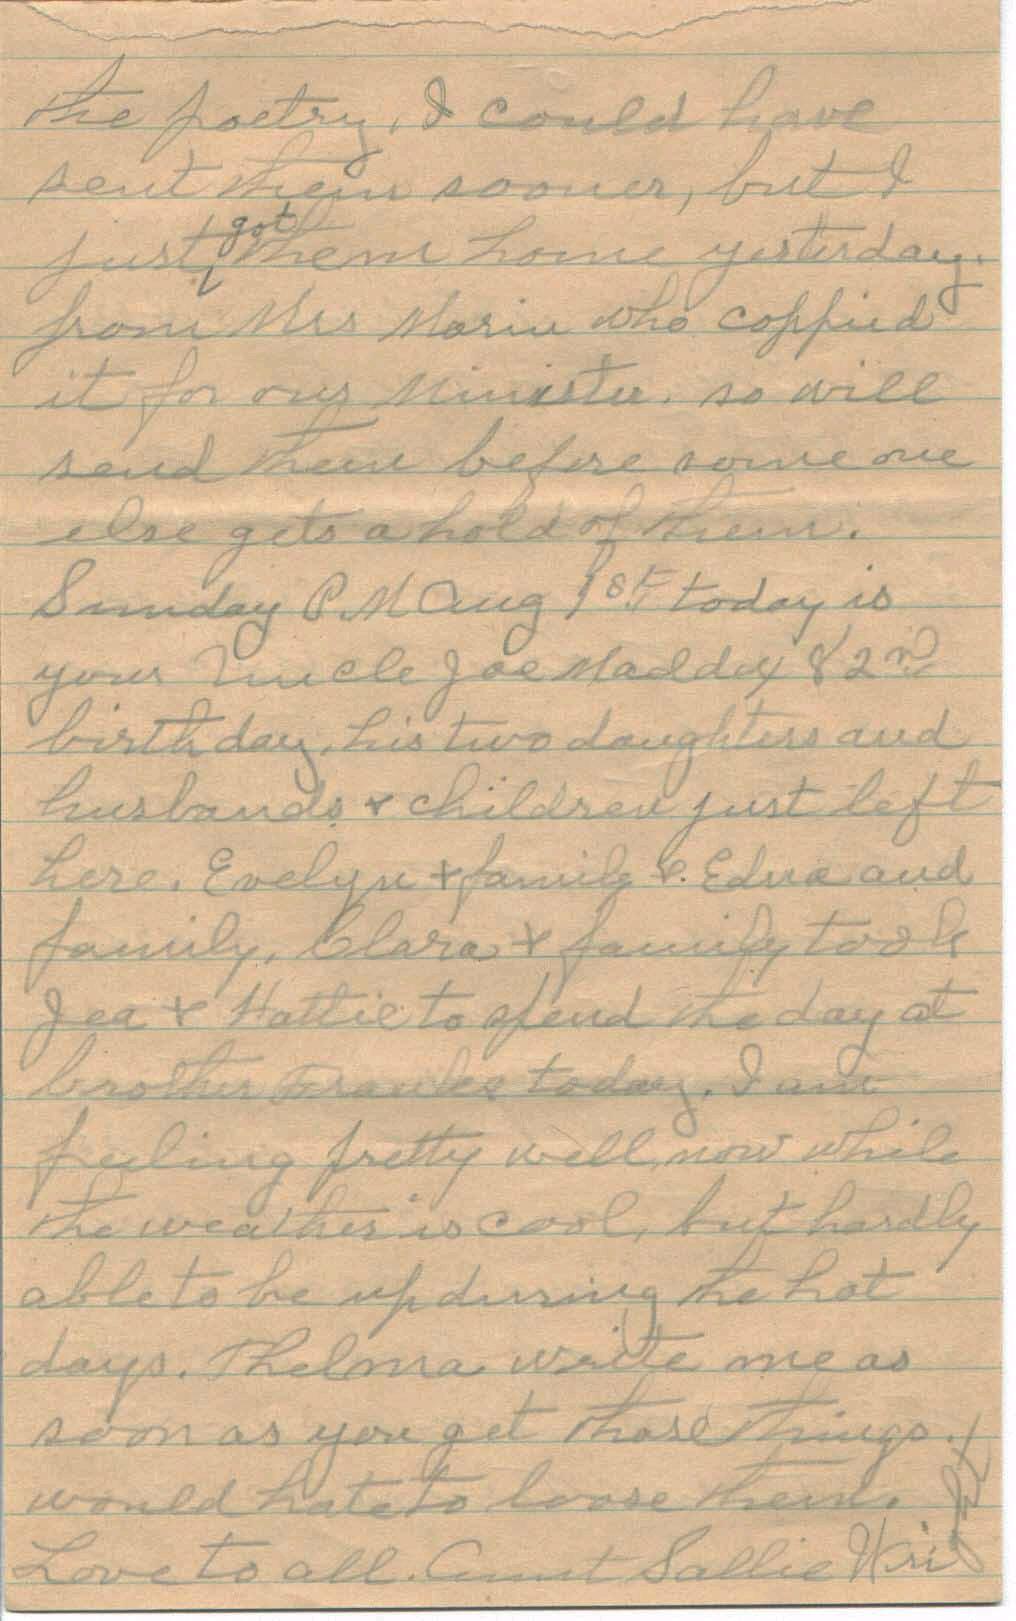 the poetry, I could have
sent them sooner, but I
just got them home yesterday.
from Mrs Marin who coppied
it for our Minister. so will
send them before some one
else gets a hold of them.
Sunday P.M Aug 1st today is
your Uncle Joe Maddox 82nd
birthday, his two daughters and
husbands & children just left
here. Evelyn & family & Edna and
family, Clara & family took
Joa & Hattie to spend the day at
brother Franks today. I am
feeling pretty well, now while
the weather is cool, but hardly
able to be up during the hot
days. Thelma write me as
soon as you get those things. I
would hate to loose them.
Love to all. Aunt Sallie